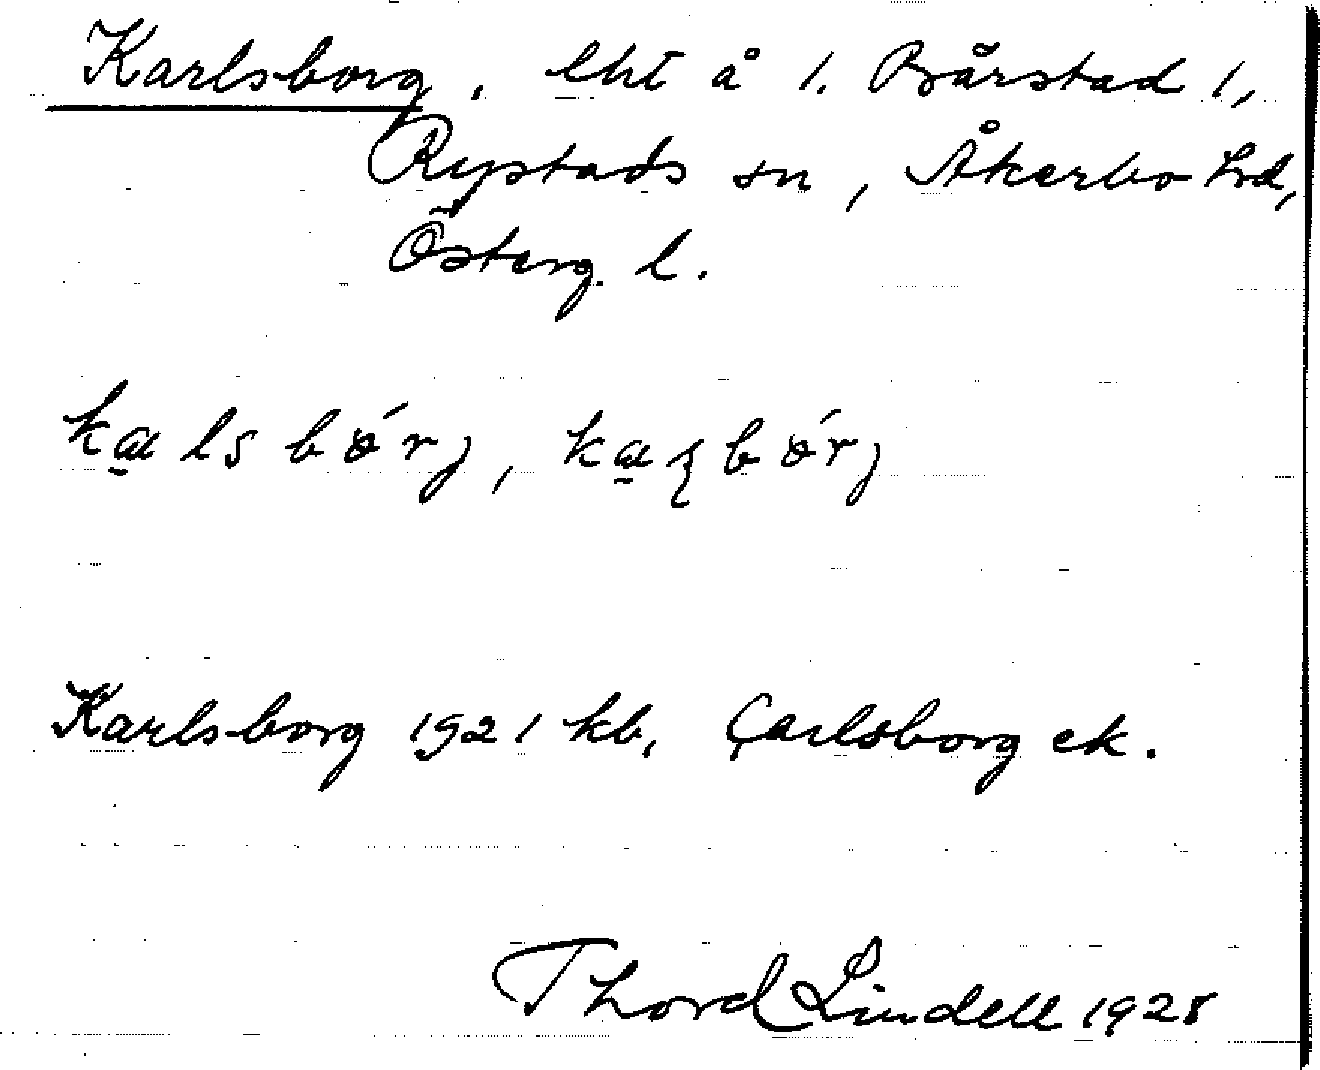 Karlsborg, lht å 1. Bårstad 1,
Rystads sn, Åkerbo hd,
Österg. l.
kalsbórj, kaʂbórj
Karlsborg 1921 kb, Carlsborg ek.
Thord Lindell 1928